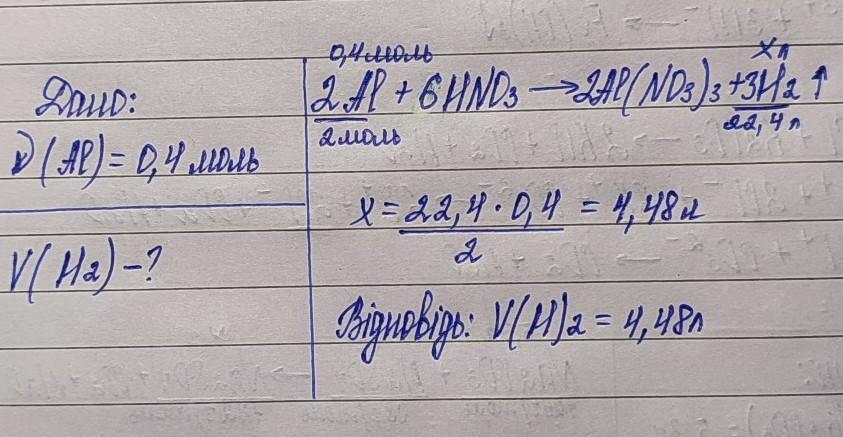 Дано:
ν(Al) = 0,4 моль
V(H2) - ?
0,4 моль
x л
2Al + 6HNO3 → 2Al(NO3)3 + 3H2 ↑
2 моль
22,4 л
x = 22,4 · 0,4 / 2 = 4,48 л
Відповідь: V(H)2 = 4,48 л